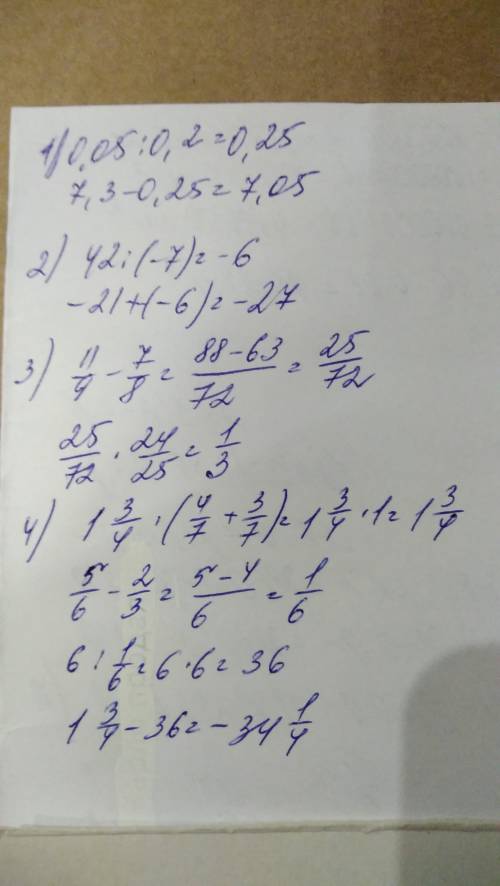 1) 0,05 : 0,2 = 0,25
7,3 - 0,25 = 7,05
2) 42 : (-7) = -6
-21 + (-6) = -27
3) 11/9 - 7/8 = (88 - 63)/72 = 25/72
25/72 · 24/25 = 1/3
4) 1 3/4 · (4/7 + 3/7) = 1 3/4 · 1 = 1 3/4
5/6 - 2/3 = (5 - 4)/6 = 1/6
6 : 1/6 = 6 · 6 = 36
1 3/4 - 36 = -34 1/4